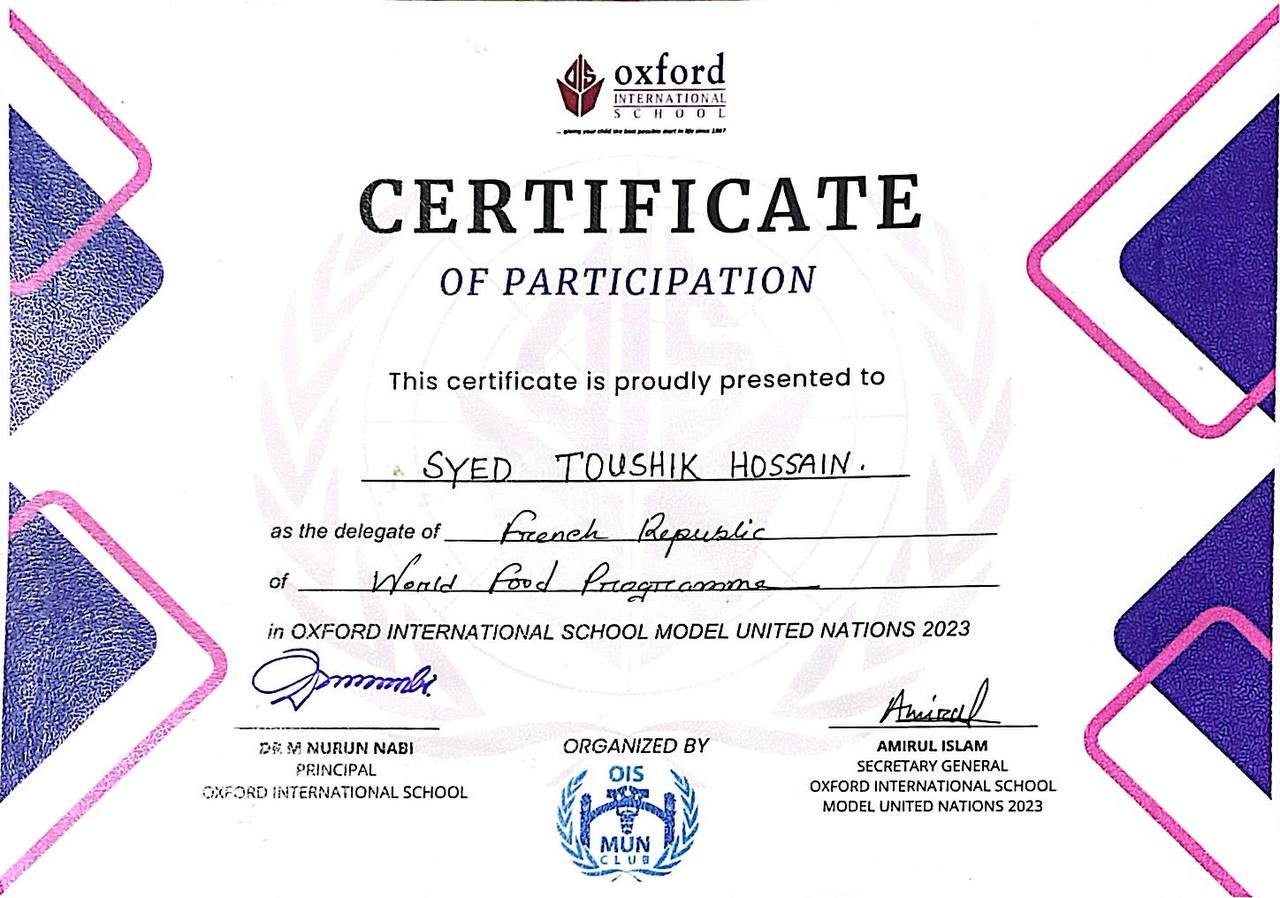 OIS
oxford
INTERNATIONAL
SCHOOL
... giving your child the best possible start in life since 1987
CERTIFICATE
OF PARTICIPATION
This certificate is proudly presented to
SYED TOUSHIK HOSSAIN.
as the delegate of French Republic
of World Food Programme
in OXFORD INTERNATIONAL SCHOOL MODEL UNITED NATIONS 2023
Amirul
DR. M NURUN NABI
PRINCIPAL
OXFORD INTERNATIONAL SCHOOL
ORGANIZED BY
OIS
MUN
CLUB
AMIRUL ISLAM
SECRETARY GENERAL
OXFORD INTERNATIONAL SCHOOL
MODEL UNITED NATIONS 2023